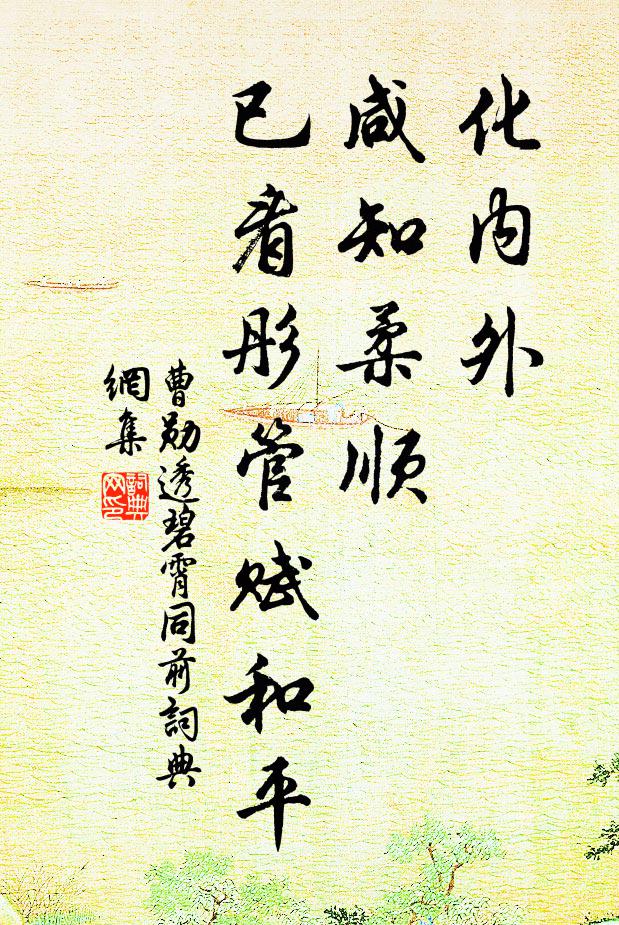 化内外
咸知柔顺
已看彤管赋和平
曹勋透碧霄同前詞典
網集
詞典
网印